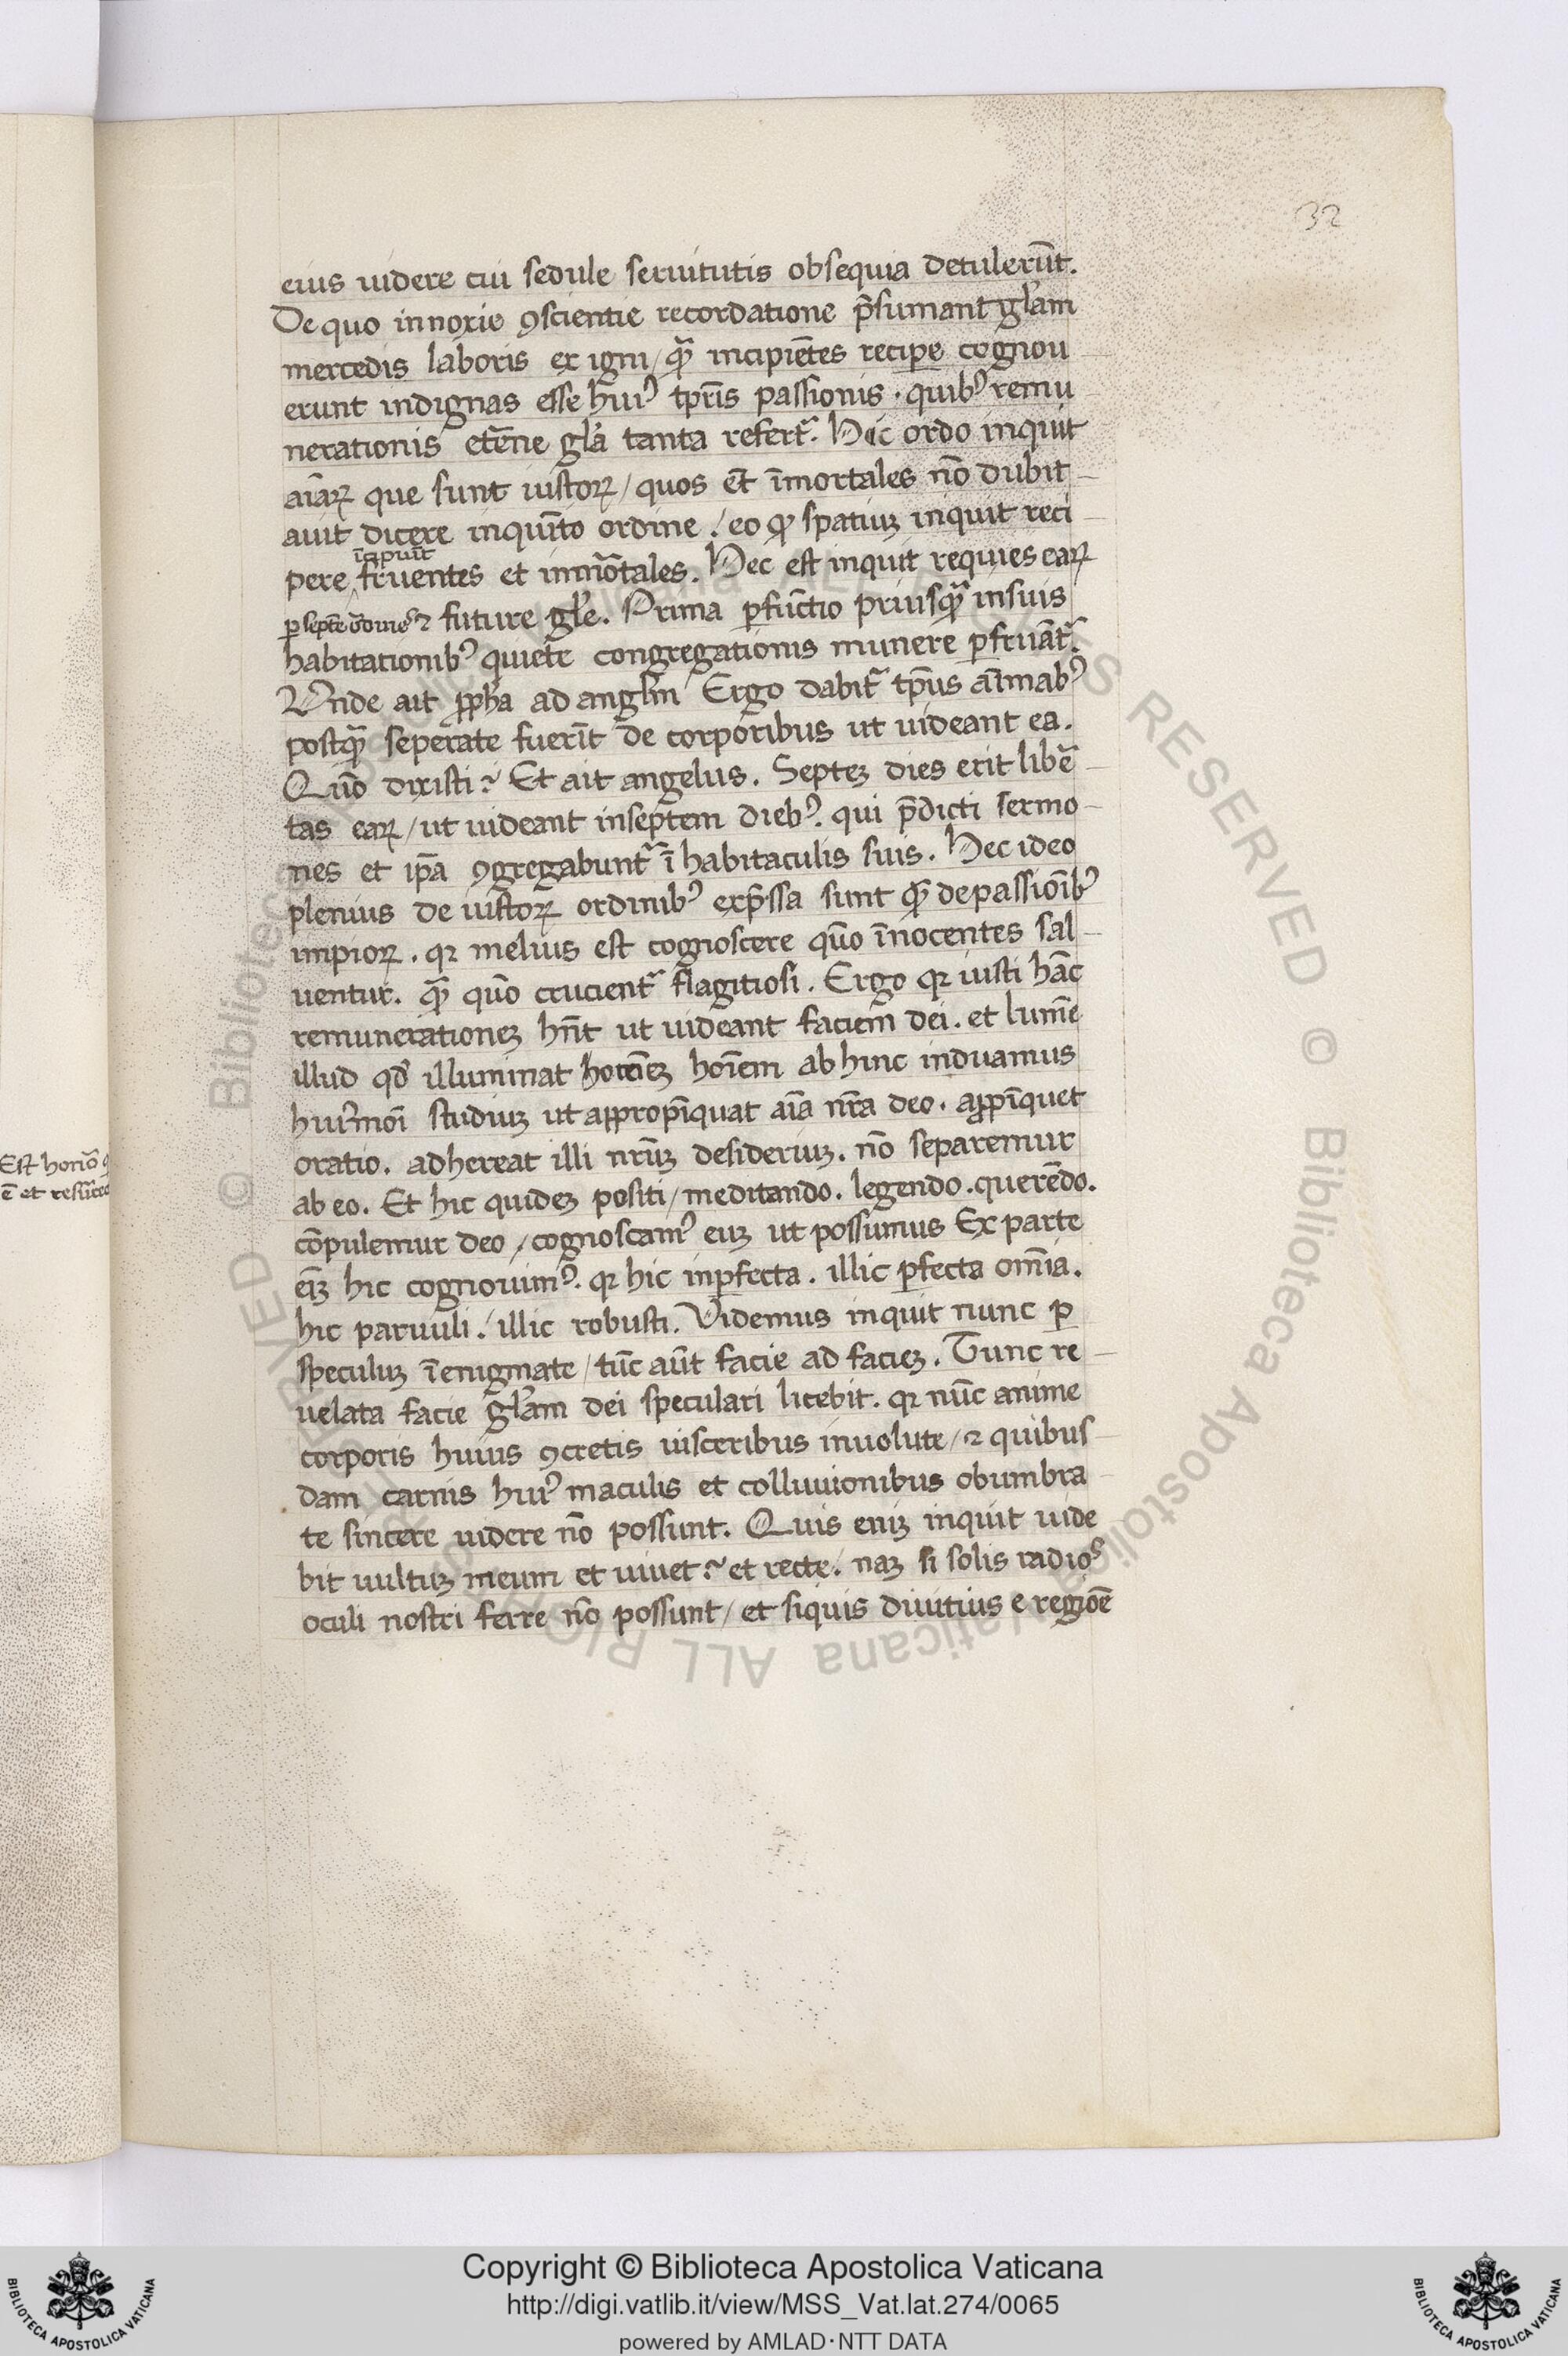 32
eius uidere cui sedule seruitutis obsequia detulerūt.
De quo innoxie ꝯscientie recordatione p̄sumant gl̄am
mercedis laboris ex igni / quā incipiētes recipe cognou
erunt indignas esse hui᾽ tp̄ris passionis . quib᾽ remu
nerationis etēne gl̄a tanta refert᾽. Hic ordo inquit
aīaꝝ que sunt iustoꝝ / quos et̄ īmortales nō dubit
auit dicere inquīto ordine / eo ꝙ spatiuꝫ inquit reci
īcipiūt
pere fruentes et inmōtales. Hec est inquit requies eaꝝ
ꝑ septē ⁊ future gl̄e. Prima ꝑfūctio priusꝙ̄ insuis
habitationib᾽ quietē congregationis munere ꝑfruāt᾽.
Vnde ait ꝓph̄a ad angl̄m Ergo dabit᾽ tp̄us aīmab᾽
postꝙ̄ seperate fuerīt de corporibus ut uideant ea.
Quō dixisti? Et ait angelus. Septeꝫ dies erit libē
tas eaꝝ / ut uideant inseptem dieb᾽. qui p̄dicti sermo
nes et ip̄a ꝯgregabunt᾽ ī habitaculis suis. Hec ideo
plenius de iustoꝝ ordinib᾽ exp̄ssa sunt ꝙ̄ de passioīb᾽
impioꝝ . qꝛ melius est cognoscere quō īnocentes sal
uentur. ꝙ̄ quō crucient᾽ flagitiosi. Ergo qꝛ iusti hāc
remunerationeꝫ hn̄t ut uideant faciem dei. et lumē
illud qd̄ illuminat hoīem ab hinc induamus
hui᾽moī studiuꝫ ut appropīquat aīa nr̄a deo. aꝓpīquet
oratio. adhereat illi nr̄ūꝫ desideriuꝫ. nō separemur
ab eo. Et hic quideꝫ positi / meditando. legendo. querēdo.
cōpulemur deo / cognoscam᾽ euꝫ ut possumus Ex parte
eīꝫ hic cognouim᾽. qꝛ hic inꝑfecta. illic ꝑfecta omīa.
hic paruuli / illic robusti. Videmus inquit nunc ꝑ
speculuꝫ ī enigmate / tūc aūt facie ad facieꝫ. Tunc re
uelata facie gl̄am dei speculari licebit. qꝛ nūc anime
corporis huius ꝯcretis uisceribus inuolute / ⁊ quibus
dam carnis hui᾽ maculis et colluuionibus obumbra
te sincere uidere nō possunt. Quis eniꝫ inquit uide
bit uultuꝫ meum et uiuet? et recte / naꝫ si solis radios
oculi nostri ferre nō possunt / et siquis diutius e regiōe
Est
et
© Biblioteca Apostolica Vaticana ALL RIGHTS RESERVED
© Biblioteca Apostolica Vaticana ALL RIGHTS RESERVED
Copyright © Biblioteca Apostolica Vaticana
http://digi.vatlib.it/view/MSS_Vat.lat.274/0065
powered by AMLAD·NTT DATA
BIBLIOTECA APOSTOLICA VATICANA
BIBLIOTECA APOSTOLICA VATICANA